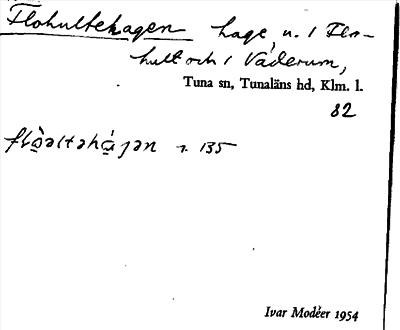 Flohultehagen hage, n. / Flo-
hult och / Väderum,
Tuna sn, Tunaläns hd, Klm. l.
82
135
Ivar Modéer 1954